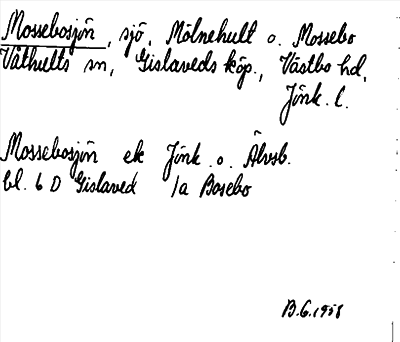 Mossebosjön, sjö, Mölnehult o. Mossebo
Våthults sn, Gislaveds köp., Västbo hd,
Jönk. l.
Mossebosjön ek Jönk. o. Älvsb.
bl. 6 D Gislaved 1a Bosebo
B.G. 1958